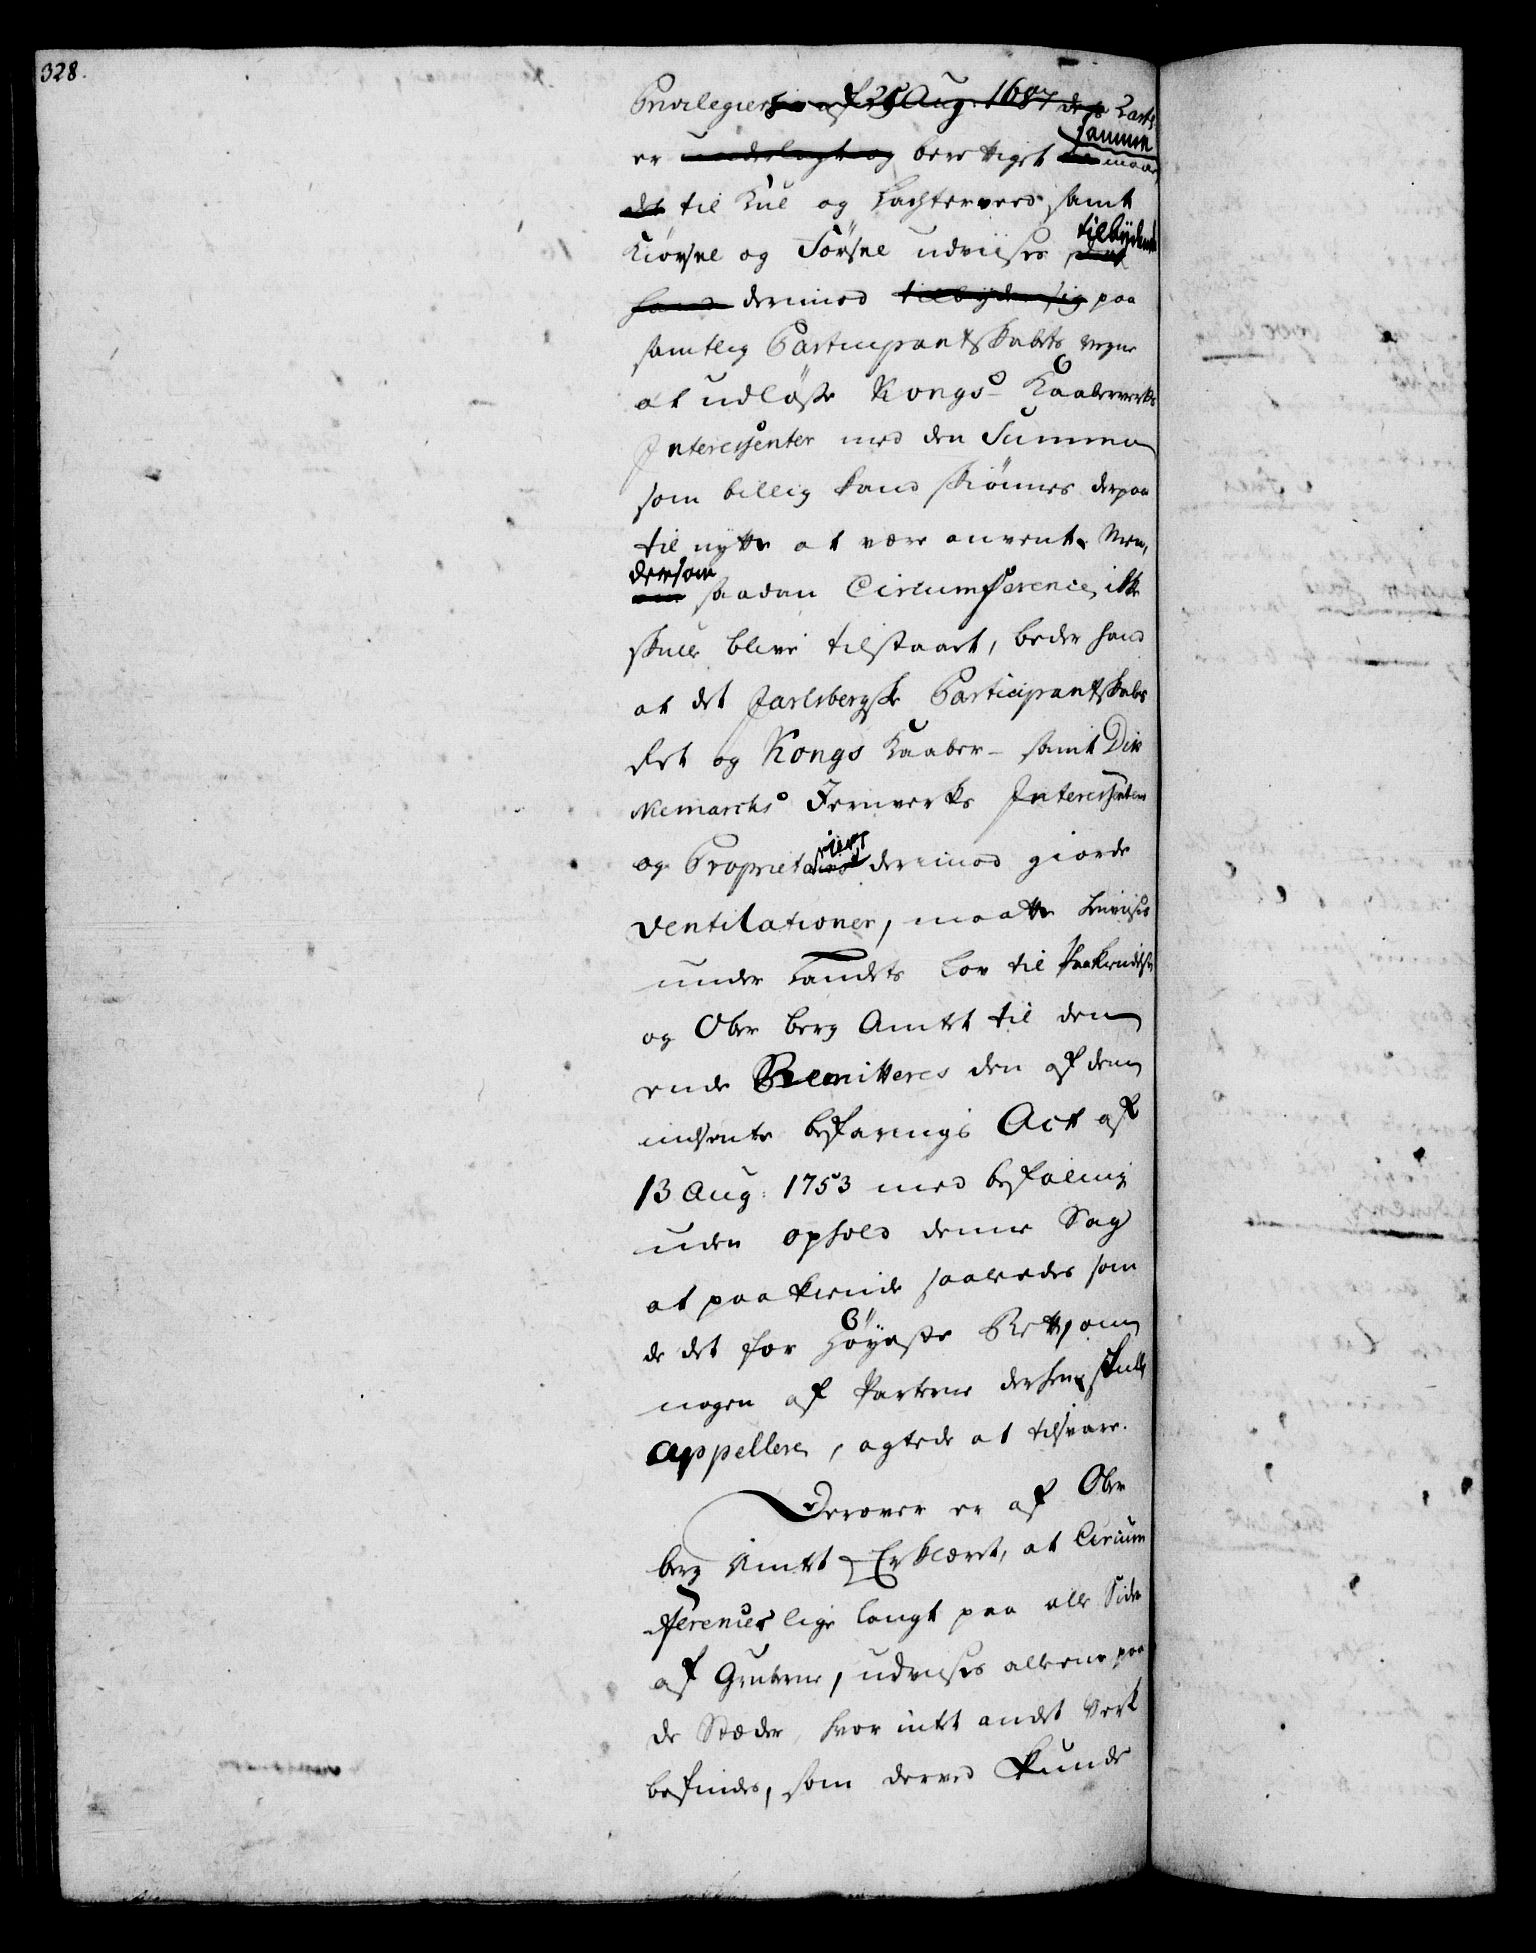 328.
Privilegier af 25 Aug: 1687
samme
er underlagt og berettiget maae
det til Kul og Lagterveed samt
tilbydende
Kiørsel og Førsel udviises
hand derimod tilbyder sig paa
samtlig Participantskabets vegne
at udløse Kongs- Kaaberverks
Interessenter med den Summa
som billig kand skiønnes derpaa
til nytte at være anvent. Men,
dersom
om saadan Circumference ikke
skulle blive tilstaaet, beder hand
at det Jarlsbergske Participantskabs
Ret og Kongs Kaaber- samt Dik
kemarchs Jernverks Interessenters
og Proprietairers derimod giorde
ventilationer, maatte henviises
under Landets Lov til Paakiendelse
og Ober Berg Amtet til den
ende Remitteres den af dem
indsente Befarings Act af
13 Aug: 1753 med befaling
uden ophold denne Sag
at paakiende saaledes som
de det for Höyeste Rett, om
nogen af Parterne derhen skulle
appellere, agtede at tilsvare.
Derover er af Ober
berg Amtet Erklæret, at Circum
ferencer lige langt paa alle Sider
af Gruberne, udviises alleene paa
de Stæder, hvor intet andet Verk
befindes, som derved kunde